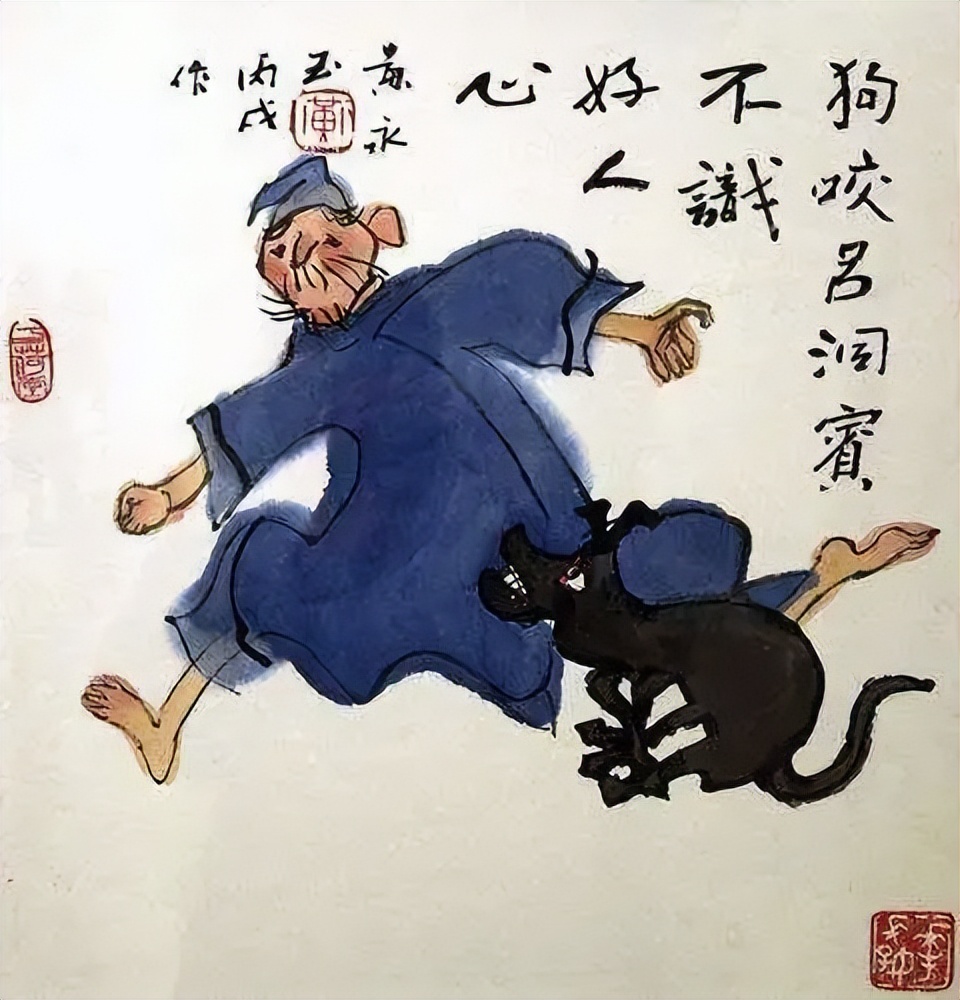 狗咬呂洞賓
不識
好人
心
黃永
玉
丙戌
作
黃